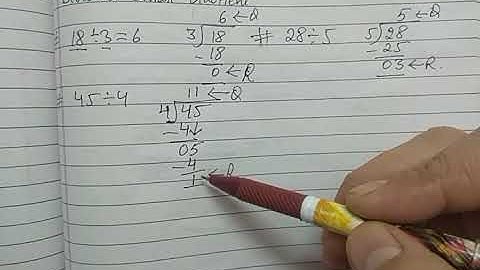 18÷3=6
6←Q
3)18
-18
0←R
# 28÷5
5←Q
5)28
-25
03←R
45÷4
11←Q
4)45
-4↓
05
-4
1←R